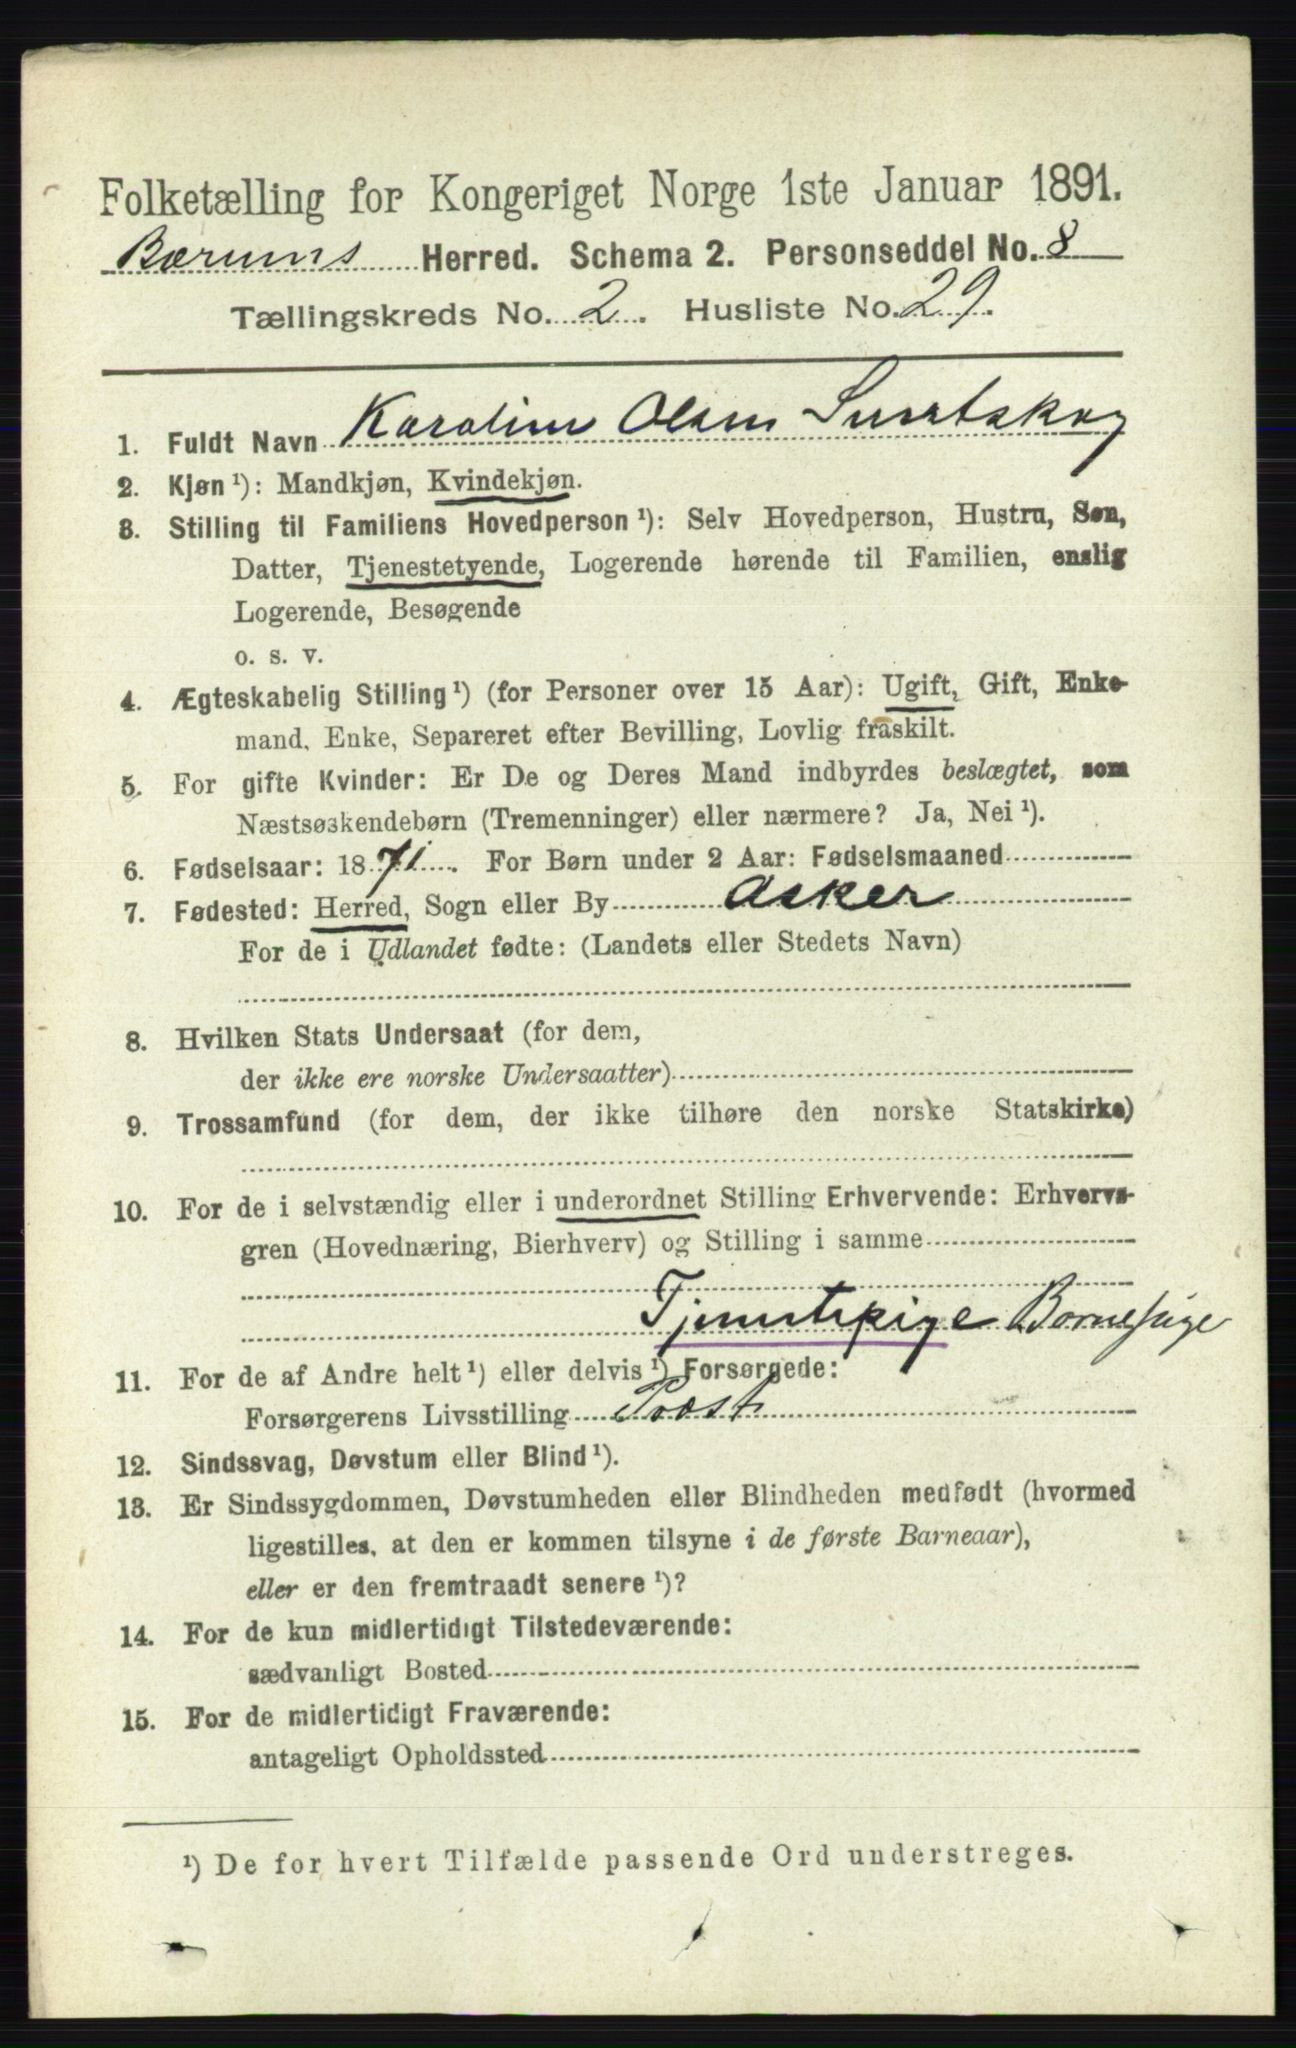 Folketælling for Kongeriget Norge 1ste Januar 1891.
Bærums Herred. Schema 2. Personseddel No. 8
Tællingskreds No. 2. Husliste No. 29.
1. Fuldt Navn Karoline Olsen
2. Kjøn ¹): Mandkjøn, Kvindekjøn.
3. Stilling til Familiens Hovedperson ¹): Selv Hovedperson, Hustru, Søn,
Datter, Tjenestetyende, Logerende hørende til Familien, enslig
Logerende, Besøgende
o. s. v.
4. Ægteskabelig Stilling ¹) (for Personer over 15 Aar): Ugift, Gift, Enke-
mand, Enke, Separeret efter Bevilling, Lovlig fraskilt.
5. For gifte Kvinder: Er De og Deres Mand indbyrdes beslægtet, som
Næstsøskendebørn (Tremenninger) eller nærmere? Ja, Nei ¹).
6. Fødselsaar: 1871. For Børn under 2 Aar: Fødselsmaaned
7. Fødested: Herred, Sogn eller By Asker
For de i Udlandet fødte: (Landets eller Stedets Navn)
8. Hvilken Stats Undersaat (for dem,
der ikke ere norske Undersaatter)
9. Trossamfund (for dem, der ikke tilhøre den norske Statskirke)
10. For de i selvstændig eller i underordnet Stilling Erhvervende: Erhvervs-
gren (Hovednæring, Bierhverv) og Stilling i samme
Tjenestepige Barnepige
11. For de af Andre helt ¹) eller delvis ¹) Forsørgede:
Forsørgerens Livsstilling Præst
12. Sindssvag, Døvstum eller Blind ¹).
13. Er Sindssygdommen, Døvstumheden eller Blindheden medfødt (hvormed
ligestilles, at den er kommen tilsyne i de første Barneaar),
eller er den fremtraadt senere ¹)?
14. For de kun midlertidigt Tilstedeværende:
sædvanligt Bosted
15. For de midlertidigt Fraværende:
antageligt Opholdssted
¹) De for hvert Tilfælde passende Ord understreges.